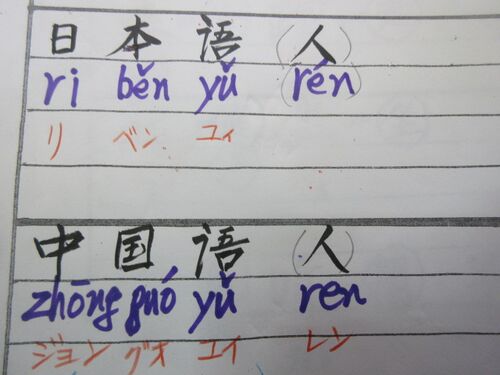 日本语(人)
ri běn yǔ (rén)
リ ベン ユィ
中国语(人)
zhōng guó yǔ ren
ジョン グオ ユイ レン